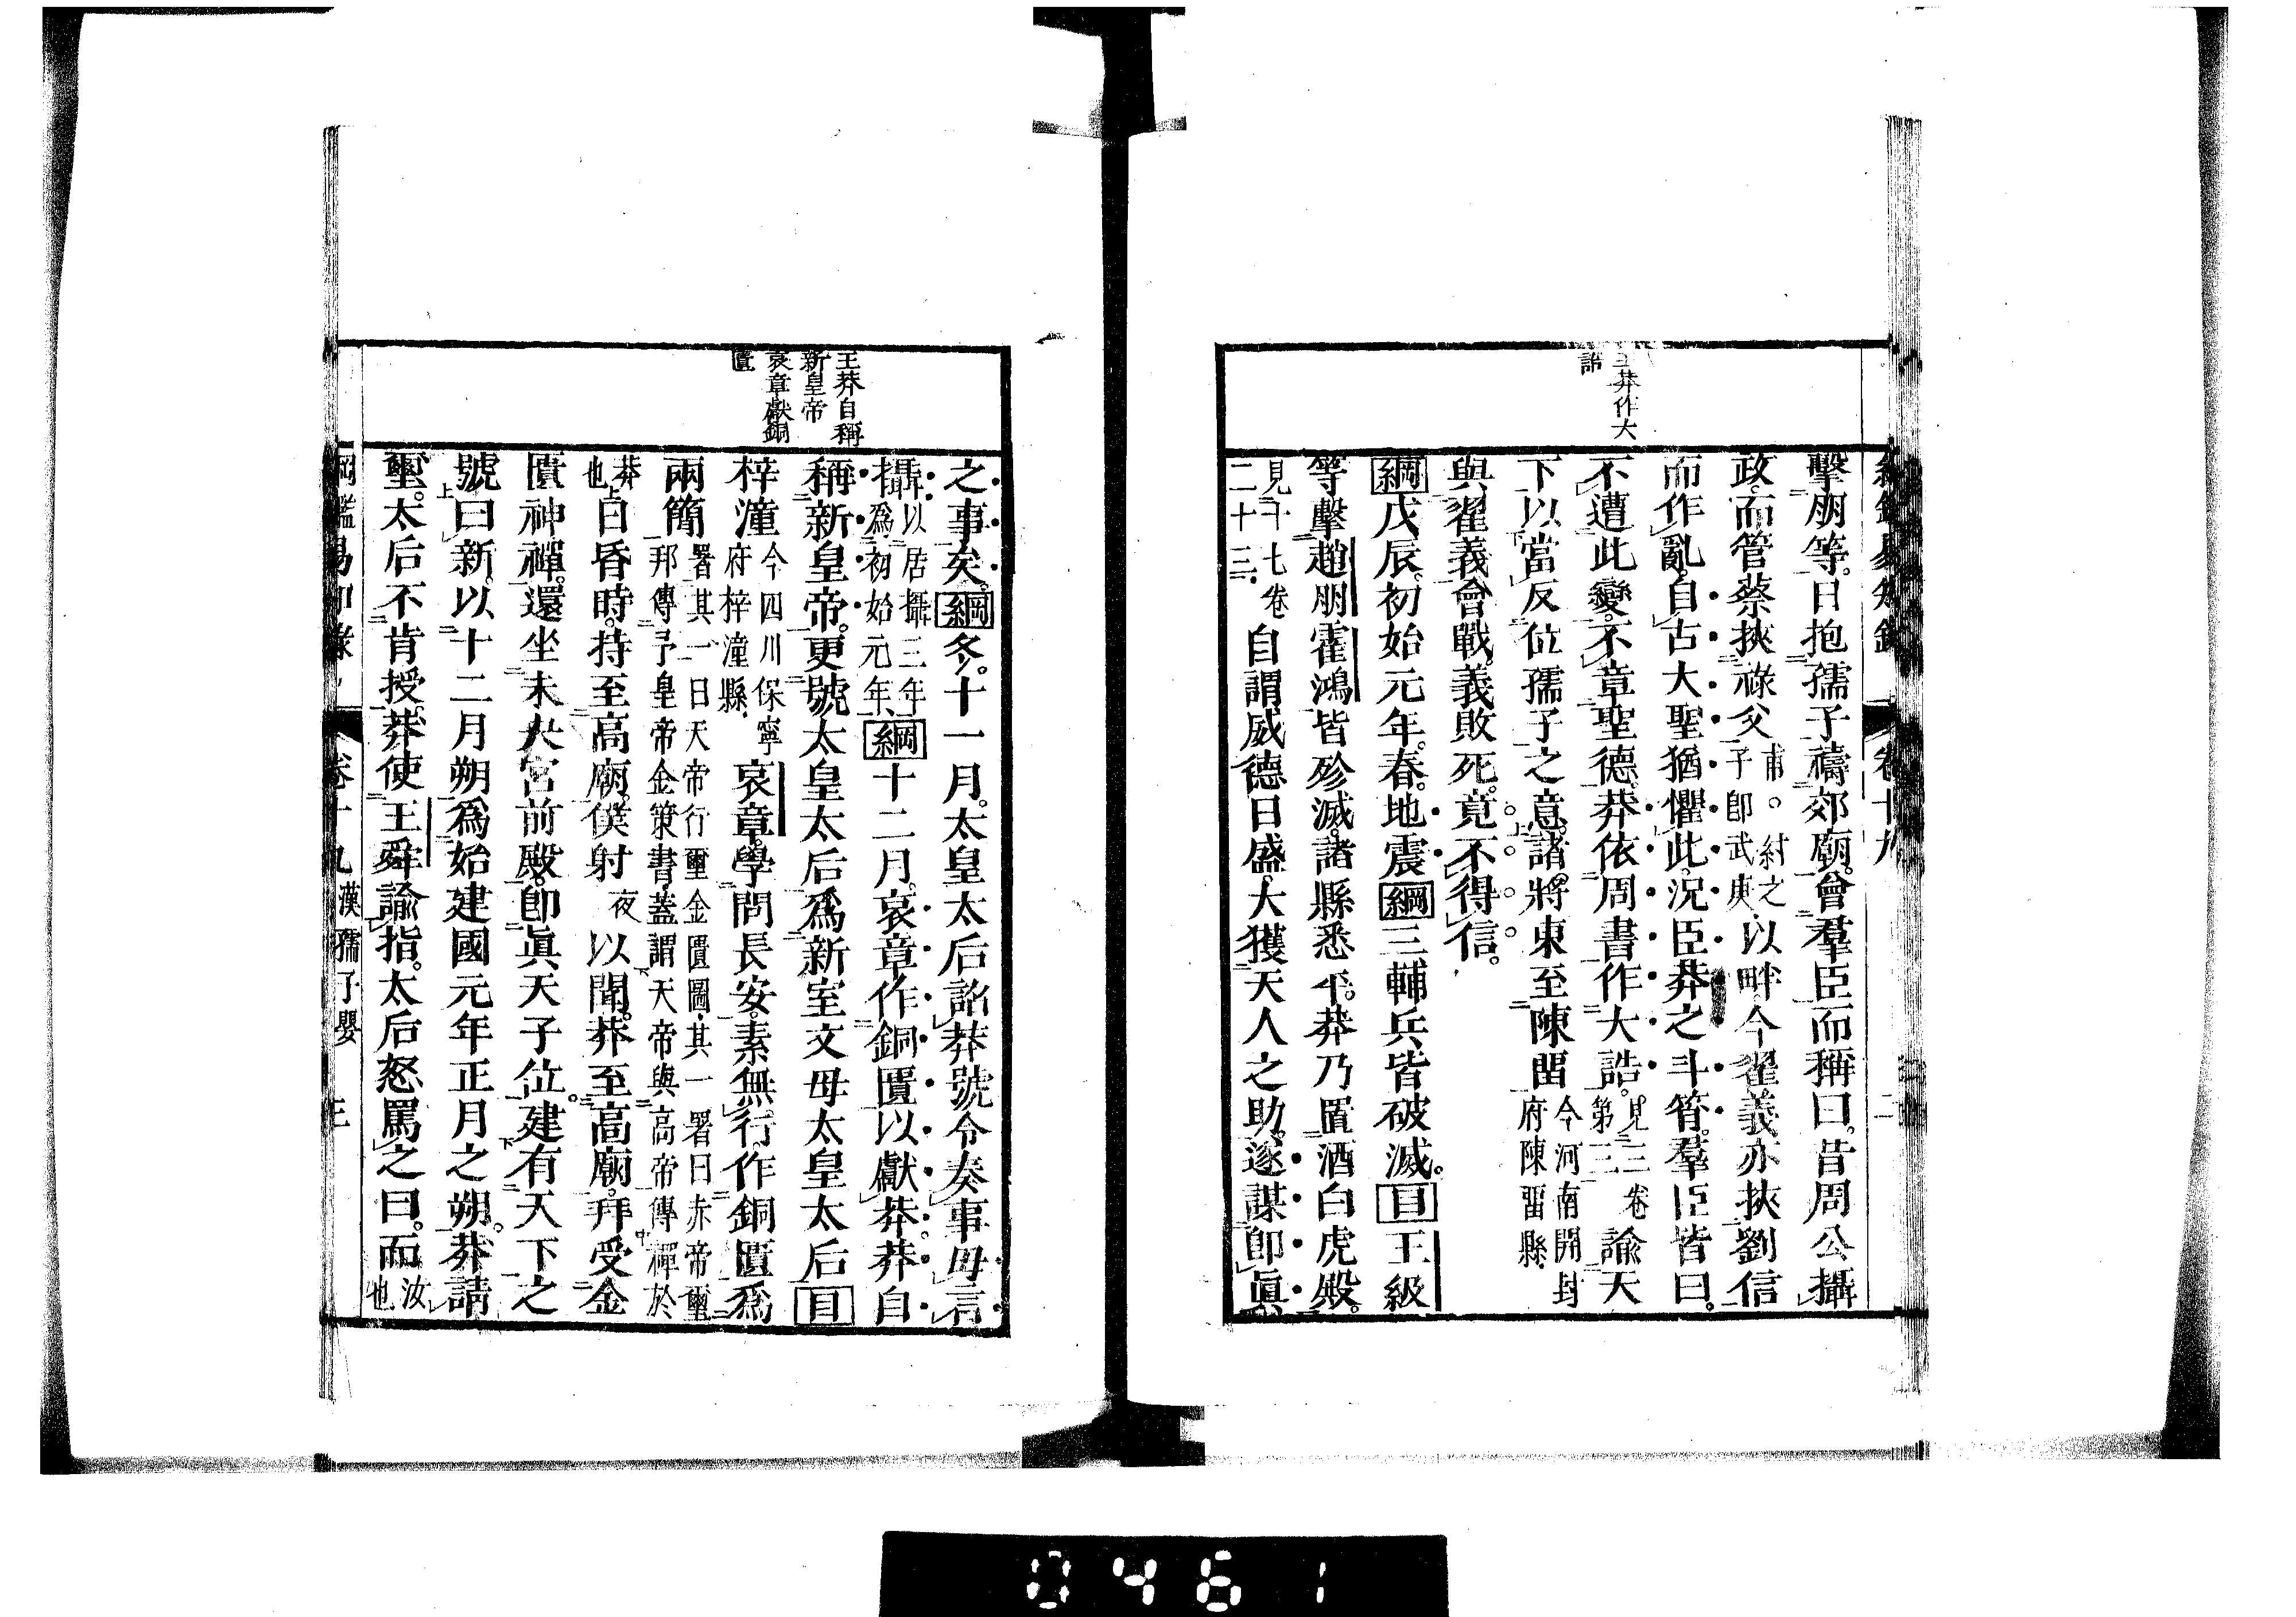 綱鑑易知錄 卷十九 二
王莽作大
誥
擊朋等。日抱孺子禱郊廟。會羣臣而稱曰。昔周公攝
政。而管蔡挾祿父甫。紂之子卽武庚。以畔。今翟義亦挾劉信
而作亂。自古大聖猶懼此。況臣莽之斗筲。羣臣皆曰。
不遭此變。不章聖德。莽依周書作大誥。見三卷第二三諭天
下以當反位孺子之意。諸將東至陳留今河南開封府陳畱縣。
與翟義會戰。義敗死。竟不得信。
綱戊辰。初始元年。春。地震綱三輔兵皆破滅。目王級
等擊趙朋霍鴻皆殄滅。諸縣悉平。莽乃置酒白虎殿。
見十七卷二十三。自謂威德日盛。大獲天人之助。遂謀卽眞
王莽自稱
新皇帝
哀章獻銅
匱
之事矣。綱冬。十一月。太皇太后詔莽號令奏事毋言
攝以居攝三年爲初始元年、綱十二月。哀章作銅匱以獻莽。莽自
稱新皇帝。更號太皇太后爲新室文母太皇太后目
梓潼今四川保寧府梓潼縣。哀章。學問長安。素無行。作銅匱爲
兩簡署其一曰天帝行璽金匱圖。其一署曰赤帝璽邦傳予皇帝金策書。蓋謂天帝與高帝傳禪於
莽也白昏時。持至高廟。僕射夜以聞。莽至高廟。拜受金
匱神禪。還坐未央宮前殿。卽眞天子位。建有天下之
號曰新。以十二月朔爲始建國元年正月之朔。莽請
璽。太后不肯授。莽使王舜諭指。太后怒罵之曰。而汝也
綱鑑易知錄 卷十九 漢孺子嬰 三
0461